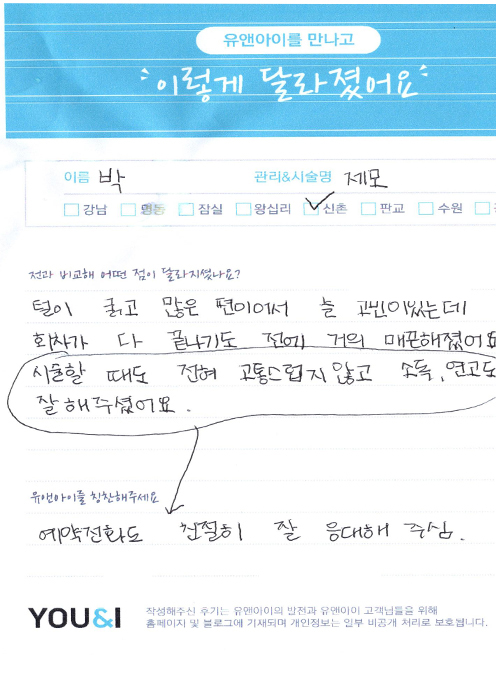 유앤아이를 만나고
이렇게 달라졌어요
이름 박 관리&시술명 제모
강남 명동 잠실 왕십리 신촌 판교 수원
전과 비교해 어떤 점이 달라지셨나요?
털이 굵고 많은 편이어서 늘 고민이었는데
회차가 다 끝나기도 전에 거의 매끈해졌어요
시술할 때도 전혀 고통스럽지 않고 소독, 연고도
잘 해주셨어요.
유앤아이를 칭찬해주세요
예약전화도 친절히 잘 응대해 주심.
YOU&I
작성해주신 후기는 유앤아이의 발전과 유앤아이 고객님들을 위해
홈페이지 및 블로그에 기재되며 개인정보는 일부 비공개 처리로 보호됩니다.